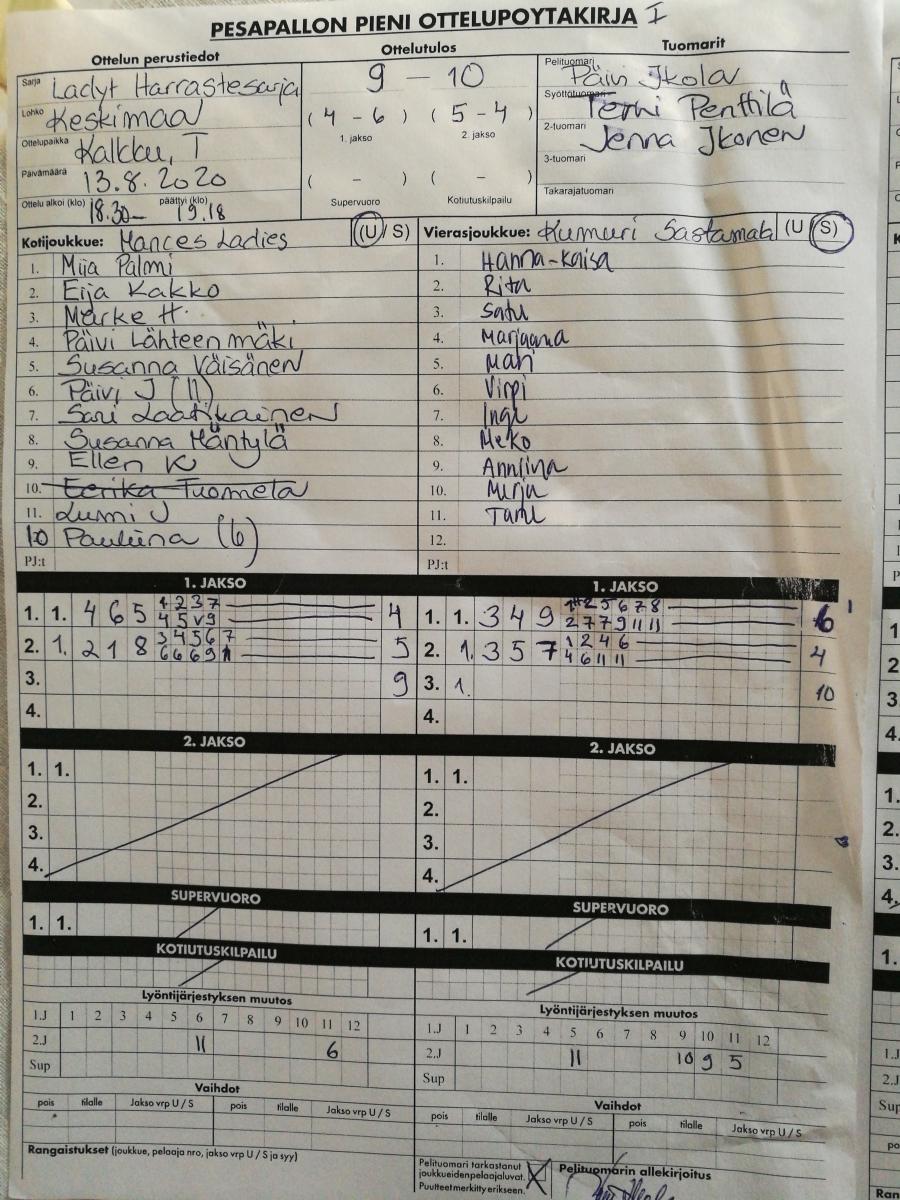 PESAPALLON PIENI OTTELUPOYTAKIRJA I
Ottelun perustiedot
Sarja Ladyt Harrastesarja
Lohko Keskimaa
Ottelupaikka Kalkku, T
Päivämäärä 13.8.2020
Ottelu alkoi (klo) 18.30– päättyi (klo) 19.18
Ottelutulos
9 – 10
(4 – 6) (5 – 4)
1. jakso 2. jakso
( – ) ( – )
Supervuoro Kotiutuskilpailu
Tuomarit
Pelituomari Päivi Ikola
Syöttötuomari Terhi Penttilä
2-tuomari Jenna Ikonen
3-tuomari
Takarajatuomari
Kotijoukkue: Mances Ladies (U / S)
1. Mija Palmi
2. Eija Kakko
3. Marke H.
4. Päivi Lähteenmäki
5. Susanna Väisänen
6. Päivi J (11)
7. Sari Laatikainen
8. Susanna Mäntylä
9. Ellen K
10. Eerika Tuomela
11. Lumi J
10 Pauliina (6)
PJ:t
Vierasjoukkue: Kumuri Sastamala (U / S)
1. Hanna-Kaisa
2. Rita
3. Satu
4. Marjaana
5. Mari
6. Virpi
7. Inge
8. Meko
9. Anniina
10. Mirja
11. Taru
12.
PJ:t
1. JAKSO
1. 1. 4 6 5 1 2 3 7 4
4 5 v 9
2. 1. 2 1 8 3 4 5 6 7 5
6 6 6 9 11
3. 9
4.
1. JAKSO
1. 1. 3 4 9 2 5 6 7 8 6
2 7 7 9 11 11
2. 1. 3 5 7 1 2 4 6 4
4 6 11 11
3. 1. 10
4.
2. JAKSO
1. 1.
2.
3.
4.
2. JAKSO
1. 1.
2.
3.
4.
SUPERVUORO
1. 1.
SUPERVUORO
1. 1.
KOTIUTUSKILPAILU
KOTIUTUSKILPAILU
Lyöntijärjestyksen muutos
1.J 1 2 3 4 5 6 7 8 9 10 11 12
2.J 11 6
Sup
Lyöntijärjestyksen muutos
1.J 1 2 3 4 5 6 7 8 9 10 11 12
2.J 11 10 9 5
Sup
Vaihdot
pois tilalle Jakso vrp U / S pois tilalle Jakso vrp U / S
Vaihdot
pois tilalle Jakso vrp U / S pois tilalle Jakso vrp U / S
Rangaistukset (joukkue, pelaaja nro, jakso vrp U / S ja syy)
Pelituomari tarkastanut
joukkueiden pelaajaluvat. X
Puutteet merkitty erikseen.
Pelituomarin allekirjoitus